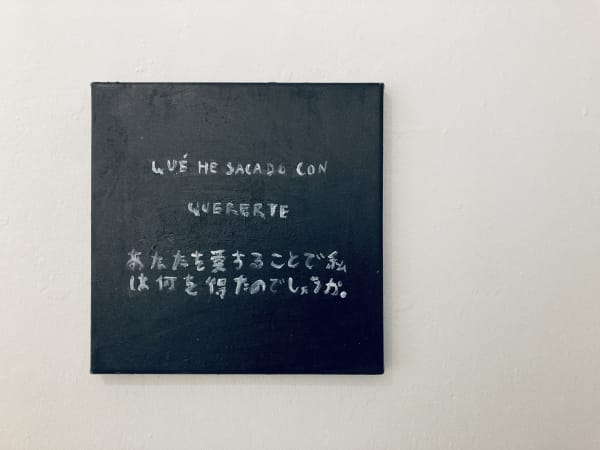 QUÉ HE SACADO CON
QUERERTE
あなたを愛することで私
は何を得たのでしょうか。